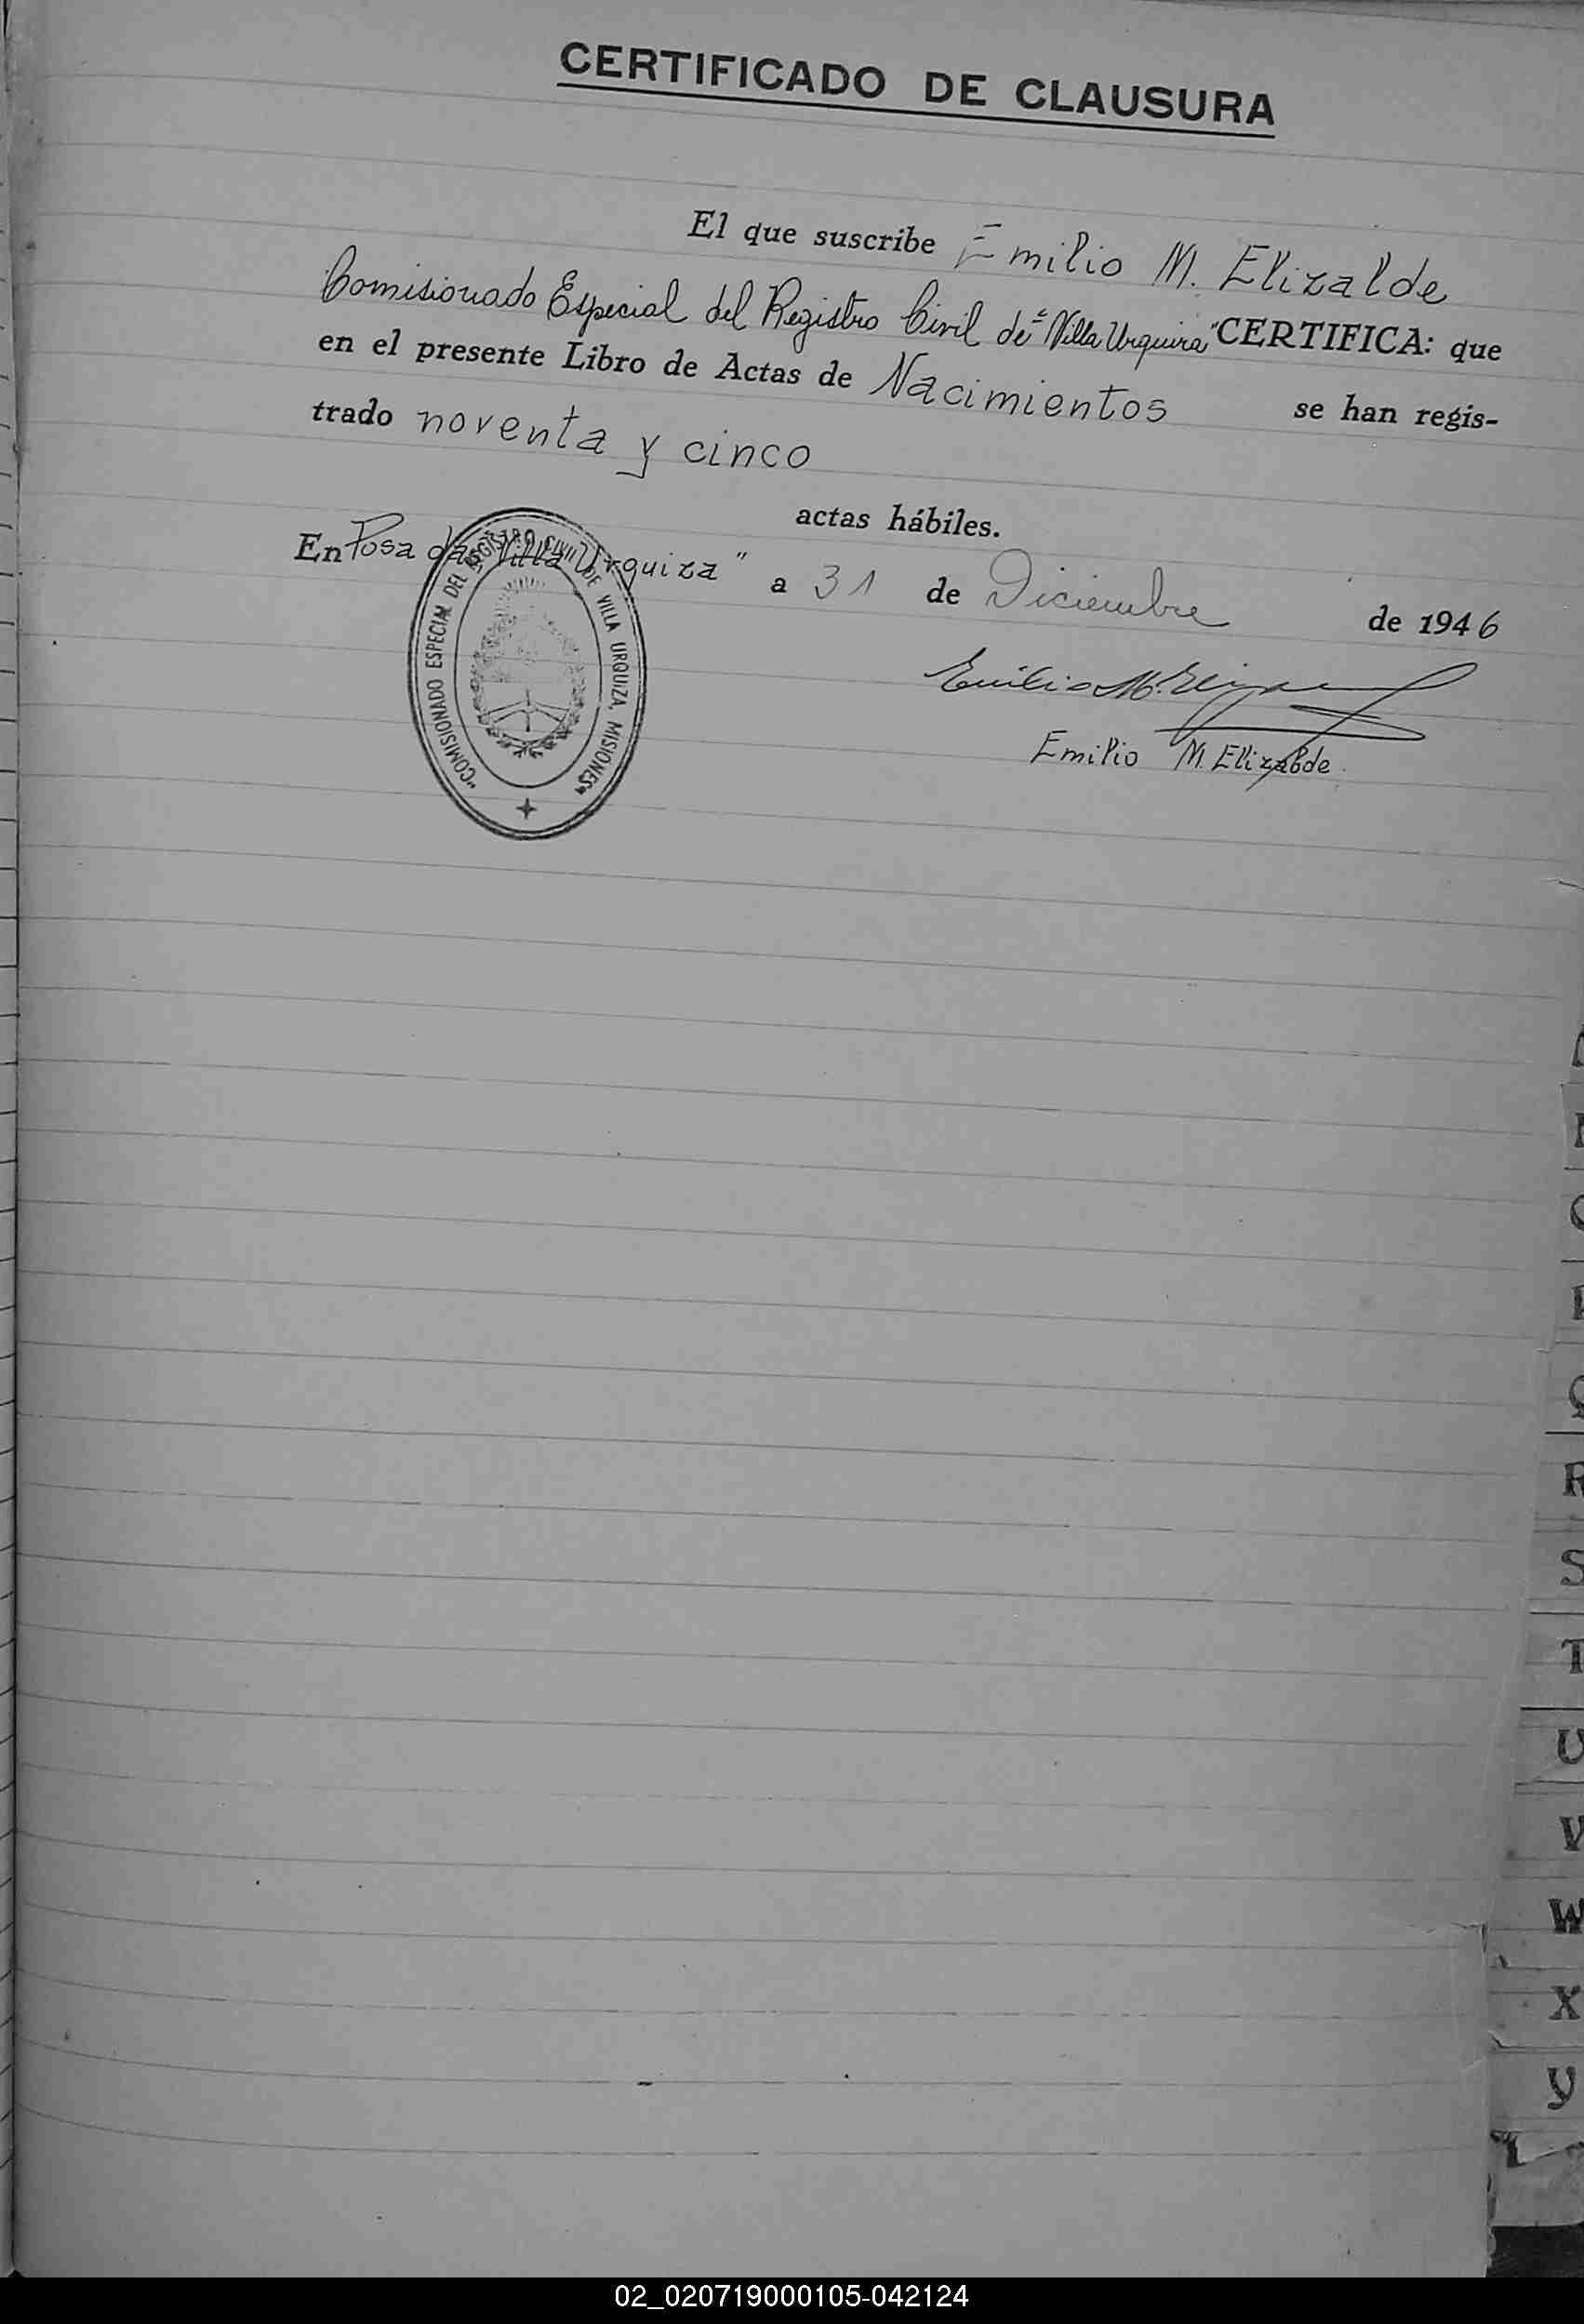 CERTIFICADO DE CLAUSURA
El que suscribe Emilio M. Elizalde
Comisionado Especial del Registro Civil de "Villa Urquiza" CERTIFICA: que
en el presente Libro de Actas de Nacimientos se han regis-
trado noventa y cinco
actas hábiles.
En Posadas "Villa Urquiza" a 31 de Diciembre de 1946
"COMISIONADO ESPECIAL DEL REGISTRO CIVIL DE VILLA URQUIZA, MISIONES"
Emilio M. Elizalde
Emilio M. Elizalde
R
S
T
U
V
W
X
Y
02_020719000105-042124